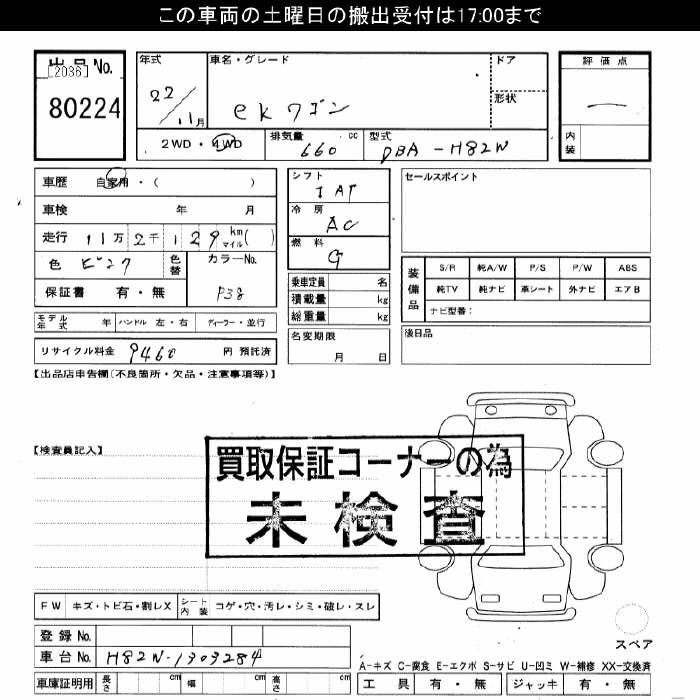 この車両の土曜日の搬出受付は17:00まで
出品No.
[2036]
80224
年式
22/11月
車名・グレード
ekワゴン
ドア
形状
評価点
内装
2WD・4WD
排気量 660 cc
型式 DBA-H82W
車歴 自家用・( )
車検 年 月
走行 11万2千129 km マイル( )
色 ピンク 色替
カラーNo. P38
保証書 有・無
シフト IAT
冷房 AC
燃料 G
乗車定員 名
積載量 kg
総重量 kg
セールスポイント
装備品
S/R 純A/W P/S P/W ABS
純TV 純ナビ 革シート 外ナビ エアB
ナビ型番:
モデル年式 年 ハンドル 左・右 ディーラー・並行
名変期限
月 日
後日品
リサイクル料金 9460 円 預託済
【出品店申告欄(不良箇所・欠品・注意事項等)】
【検査員記入】
買取保証コーナーの為
未検査
FW キズ・トビ石・割レX シート内装 コゲ・穴・汚レ・シミ・破レ・スレ
スペア
登録No.
車台No. H82W-1303284
A-キズ C-腐食 E-エクボ S-サビ U-凹ミ W-補修 XX-交換済
車庫証明用 長さ cm 幅 cm 高さ cm
工具 有・無 ジャッキ 有・無